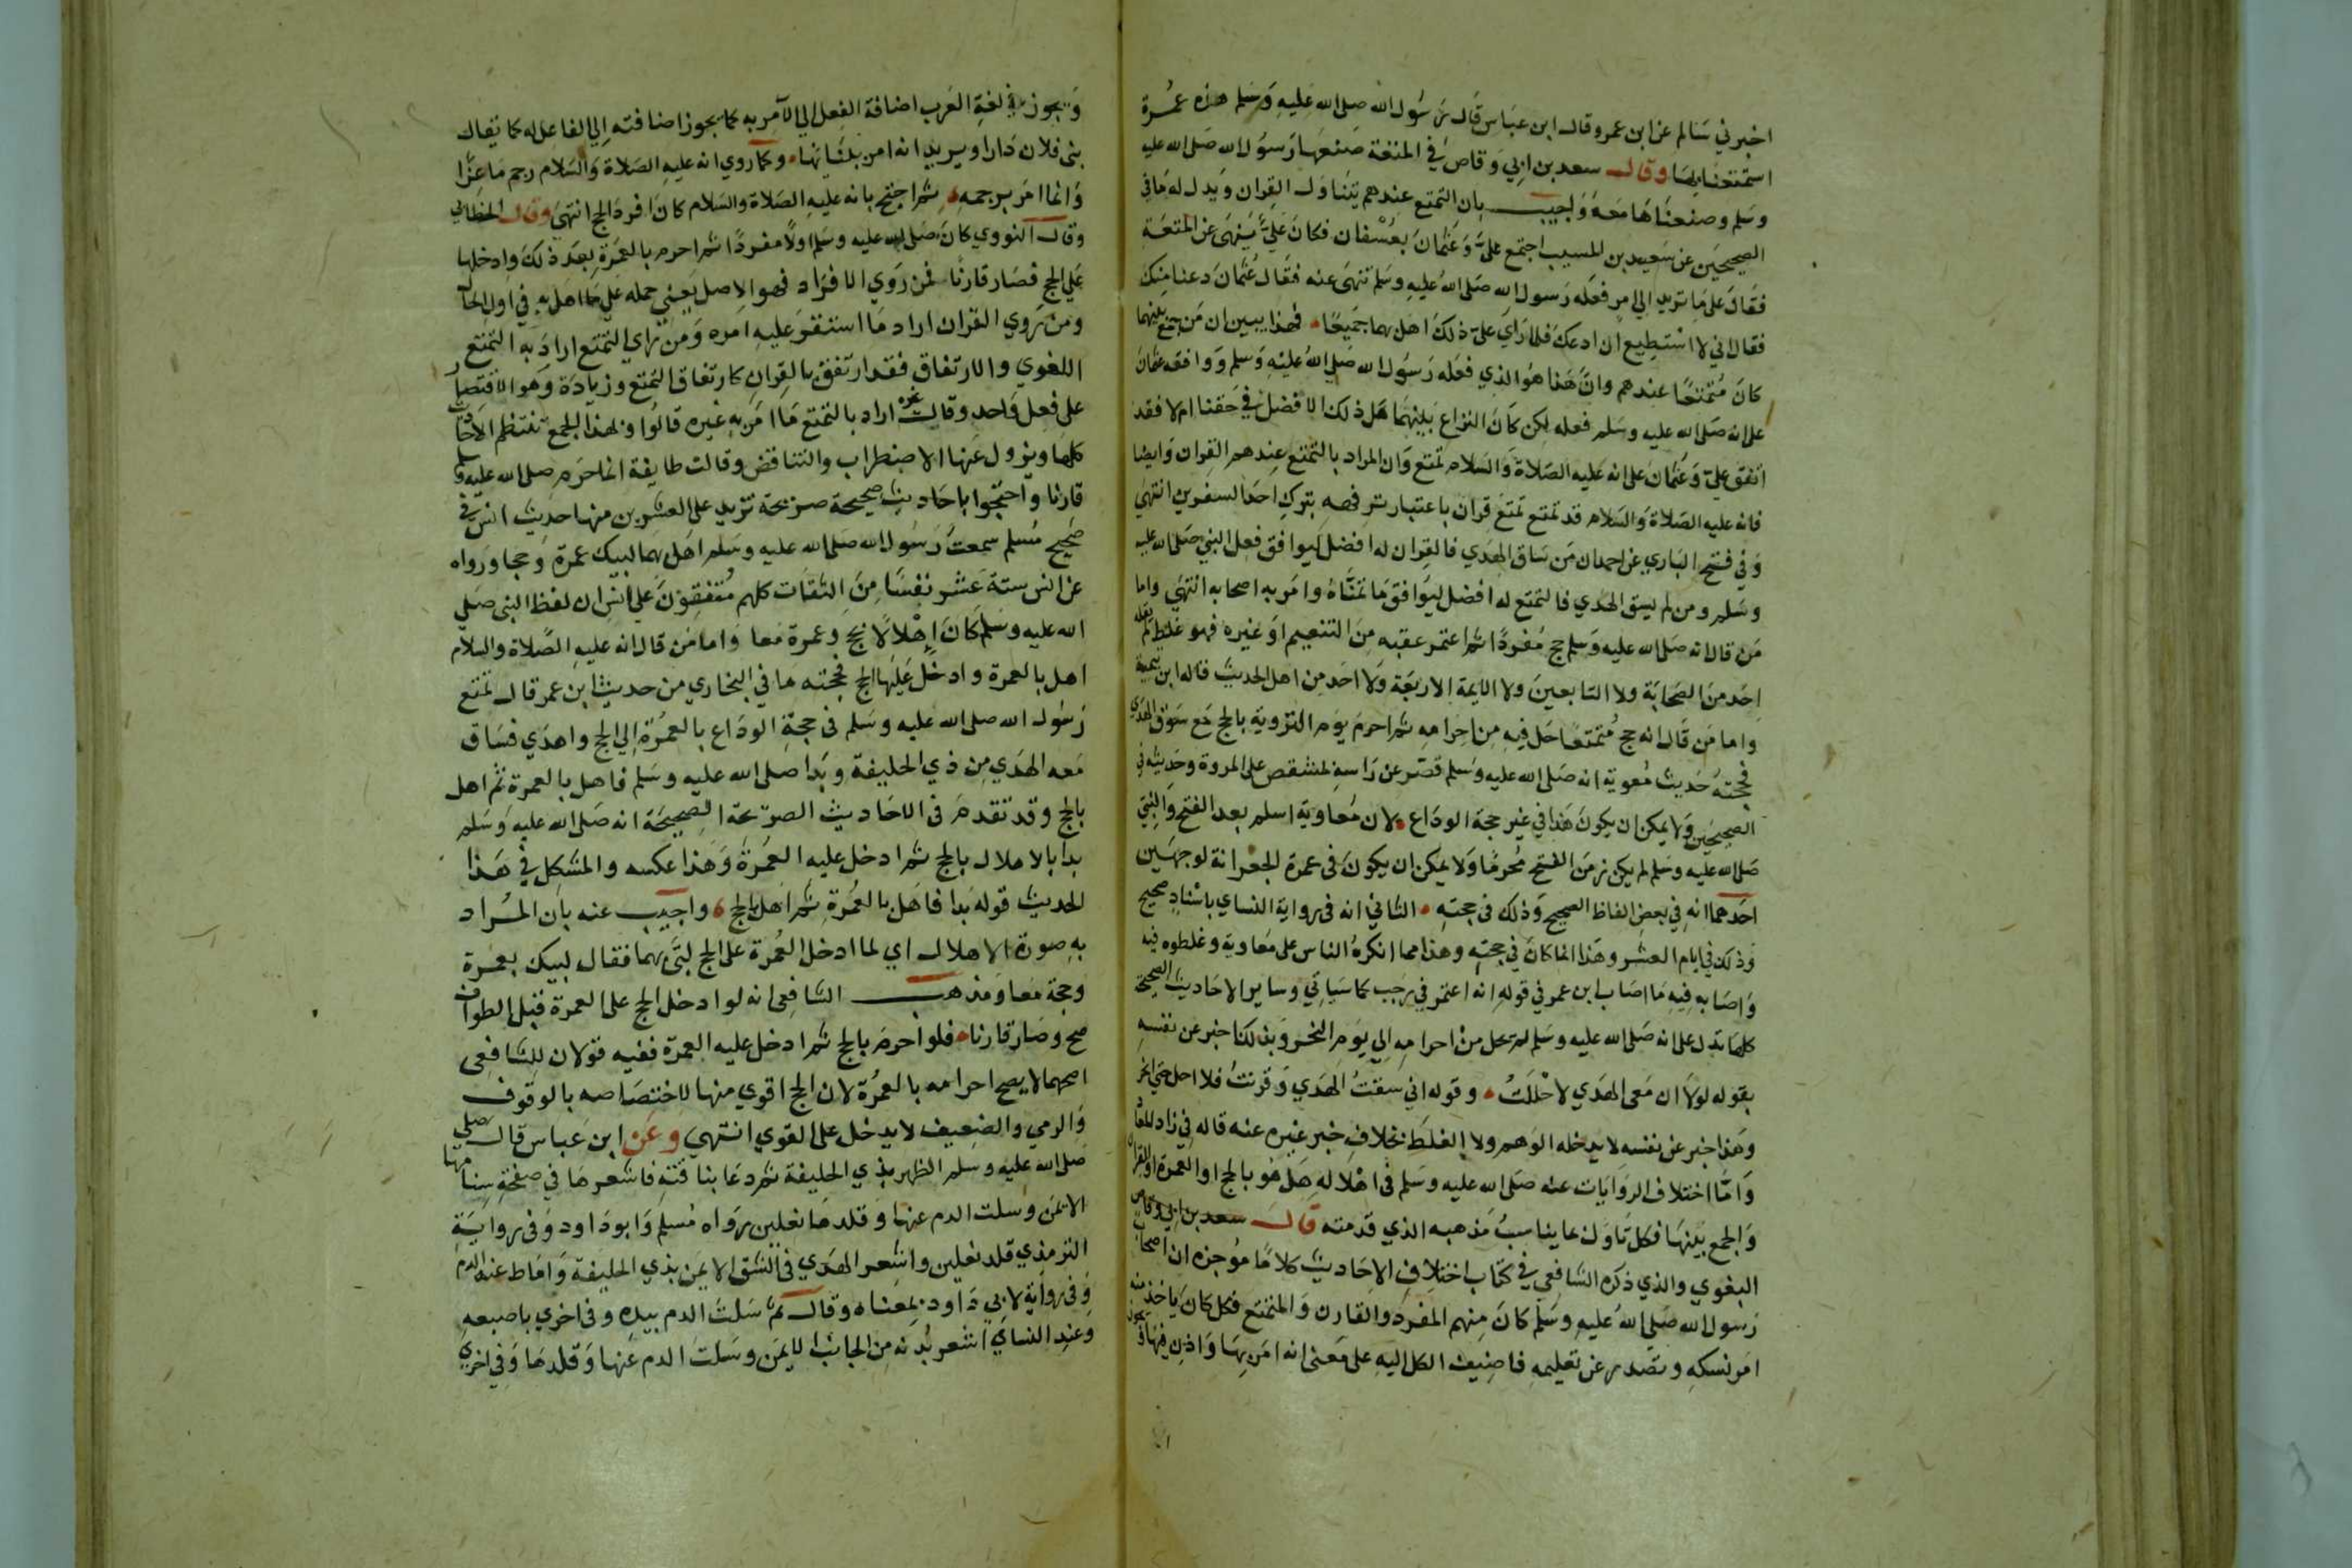 اخبرني سالم عن ابن عمر وقال ابن عباس قال رسول الله صلى الله عليه وسلم هذه عمرة
استمتعنا بها وقال سعد بن ابي وقاص في المتعة صنعها رسول الله صلى الله عليه
وسلم وصنعناها معه واجيب بان التمتع عندهم يتناول القران ويدل له ما في
الصحيحين عن سعيد بن المسيب اجتمع علي وعثمان بعسفان فكان علي ينهى عن المتعة
فقال علي ما تريد الي امر فعله رسول الله صلى الله عليه وسلم تنهى عنه فقال عثمان دعنا منك
فقال اني لا استطيع ان ادعك فلما راي علي ذلك اهل بهما جميعا فهذا يبين ان من جمع بينهما
كان متمتعا عندهم وان هذا هو الذي فعله رسول الله صلى الله عليه وسلم ووافقه عثمان
على انه صلى الله عليه وسلم فعله لكن كان النزاع بينهما هل ذلك الافضل في حقنا ام لا فقد
اتفق علي وعثمان على انه عليه الصلاة والسلام تمتع وان المراد بالتمتع عندهم القران وايضا
فانه عليه الصلاة والسلام قد تمتع تمتع قران باعتبار ترفهه بترك احد السفرين انتهى
وفي فتح الباري عن احمد ان من ساق الهدي فالقران له افضل ليوافق فعل النبي صلى الله عليه
وسلم ومن لم يسق الهدي فالتمتع له افضل ليوافق ما تمناه وامر به اصحابه انتهى واما
من قال انه صلى الله عليه وسلم حج مفردا ثم اعتمر عقبه من التنعيم او غيره فهو غلط لم يقله
احد من الصحابة ولا التابعين ولا الايمة الاربعة ولا احد من اهل الحديث قاله ابن تيمية
واما من قال انه حج متمتعا حل فيه من احرامه ثم احرم يوم التروية بالحج مع سوق الهدي
فحجته حديث معوية انه صلى الله عليه وسلم قصر عن راسه بمشقص على المروة وحديثه في
الصحيحين ولا يمكن ان يكون هذا في غير حجة الوداع لان معاوية اسلم بعد الفتح والنبي
صلى الله عليه وسلم لم يكن زمن الفتح محرما ولا يمكن ان يكون في عمرة الجعرانة لوجهين
احدهما انه في بعض الفاظ الصحيح وذلك في حجته الثاني انه في رواية النساي باسناد صحيح
وذلك في ايام العشر وهذا انما كان في حجته وهذا مما انكره الناس على معاوية وغلطوه فيه
واصابه فيه ما اصاب ابن عمر في قوله انه اعتمر في رجب كما سياتي وساير الاحاديث الصحيحة
كلها تدل على انه صلى الله عليه وسلم لم يحل من احرامه الي يوم النحر وبذلك اخبر عن نفسه
بقوله لولا ان معي الهدي لاحللت وقوله اني سقت الهدي وقرنت فلا احل حتى انحر
وهذا خبر عن نفسه لا يدخله الوهم ولا الغلط بخلاف خبر غيره عنه قاله في زاد المعاد
واما اختلاف الروايات عنه صلى الله عليه وسلم في اهلاله هل هو بالحج او العمرة او القران
والجمع بينها فكل تاول بما يناسب مذهبه الذي قدمته قال سعد بن ابي وقاص
البغوي والذي ذكره الشافعي في كتاب اختلاف الاحاديث كلاما موجزه ان اصحاب
رسول الله صلى الله عليه وسلم كان منهم المفرد والقارن والمتمتع فكل كان ياخذ منه
امر نسكه ويصدر عن تعليمه فاضيف الكل اليه على معنى انه امر بها واذن فيها
ويجوز في لغة العرب اضافة الفعل الي الآمر به كما يجوز اضافته الي الفاعل له كما يقال
بنى فلان دارا ويريد انه امر ببنائها وكما روي انه عليه الصلاة والسلام رجم ماعزا
وانما امر برجمه ثم احتج بانه عليه الصلاة والسلام كان افرد الحج انتهى وقال الخطابي
وقال النووي كان صلى الله عليه وسلم اولا مفردا ثم احرم بالعمرة بعد ذلك وادخلها
على الحج فصار قارنا فمن روي الافراد فهو الاصل يعني حمله على ما اهل به في اول الحال
ومن روي القران اراد ما استقر عليه امره ومن راي التمتع اراد به التمتع
اللغوي والارتفاق فقد ارتفق بالقران كارتفاق التمتع وزيادة وهو الاقتصار
على فعل واحد وقال غيره اراد بالتمتع ما امر به غيره قالوا وبهذا الجمع تنتظم الاحاديث
كلها ويزول عنها الاضطراب والتناقض وقالت طايفة انما احرم صلى الله عليه وسلم
قارنا واحتجوا باحاديث صحيحة صريحة تزيد على العشرين منها حديث انس في
صحيح مسلم سمعت رسول الله صلى الله عليه وسلم اهل بهما لبيك عمرة وحجا ورواه
عن انس ستة عشر نفسا من الثقات كلهم متفقون على انس ان لفظ النبي صلى
الله عليه وسلم كان اهلالا بحج وعمرة معا واما من قال انه عليه الصلاة والسلام
اهل بالعمرة وادخل عليها الحج فحجته ما في البخاري من حديث ابن عمر قال تمتع
رسول الله صلى الله عليه وسلم في حجة الوداع بالعمرة الي الحج واهدي فساق
معه الهدي من ذي الحليفة وبدا صلى الله عليه وسلم فاهل بالعمرة ثم اهل
بالحج وقد تقدم في الاحاديث الصريحة الصحيحة انه صلى الله عليه وسلم
بدا بالاهلال بالحج ثم ادخل عليه العمرة وهذا عكسه والمشكل في هذا
الحديث قوله بدا فاهل بالعمرة ثم اهل بالحج واجيب عنه بان المراد
به صورة الاهلال اي لما ادخل العمرة على الحج لبى بهما فقال لبيك بعمرة
وحجة معا ومذهب الشافعي انه لو ادخل الحج على العمرة قبل الطواف
صح وصار قارنا فلو احرم بالحج ثم ادخل عليه العمرة ففيه قولان للشافعي
اصحهما لا يصح احرامه بالعمرة لان الحج اقوي منها لاختصاصه بالوقوف
والرمي والضعيف لا يدخل على القوي انتهي وعن ابن عباس قال صلى
صلى الله عليه وسلم الظهر بذي الحليفة ثم دعا بناقته فاشعرها في صفحة سنامها
الايمن وسلت الدم عنها وقلدها نعلين رواه مسلم وابو داود وفي رواية
الترمذي قلد نعلين واشعر الهدي في الشق الايمن بذي الحليفة واماط عنه الدم
وفي رواية لابي داود بمعناه وقال ثم سلت الدم بيده وفي اخري باصبعه
وعند النساي اشعر بدنه من الجانب الايمن وسلت الدم عنها وقلدها وفي اخري